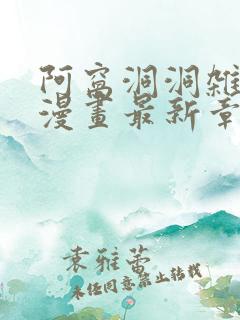 阿窝洞洞雑
漫畫最新章
袁雅蕾
未经同意禁止转载